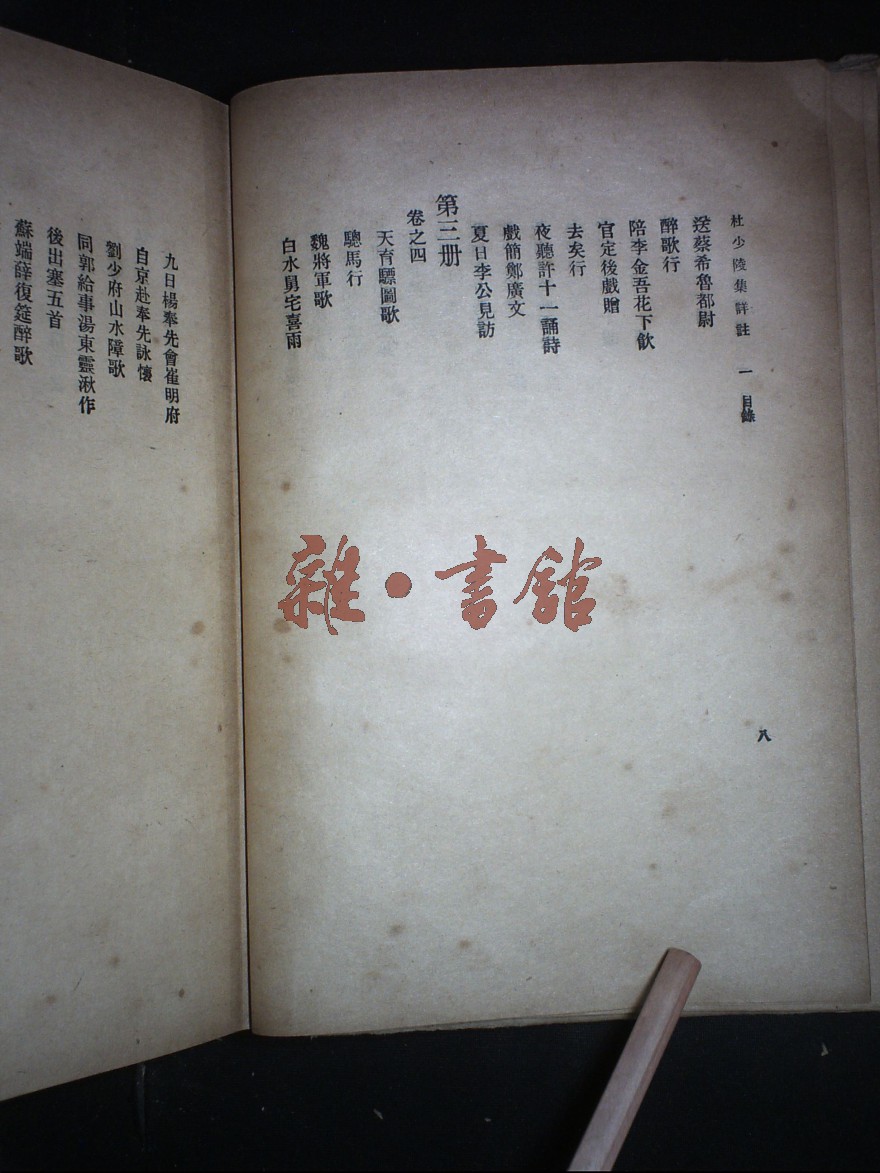 杜少陵集詳註 一 目錄
八
送蔡希魯都尉
醉歌行
陪李金吾花下飲
官定後戲贈
去矣行
夜聽許十一誦詩
戲簡鄭廣文
夏日李公見訪
第三册
卷之四
天育驃圖歌
驄馬行
魏將軍歌
白水舅宅喜雨
九日楊奉先會崔明府
自京赴奉先詠懷
劉少府山水障歌
同郭給事湯東靈湫作
後出塞五首
蘇端薛復筵醉歌
雜·書館